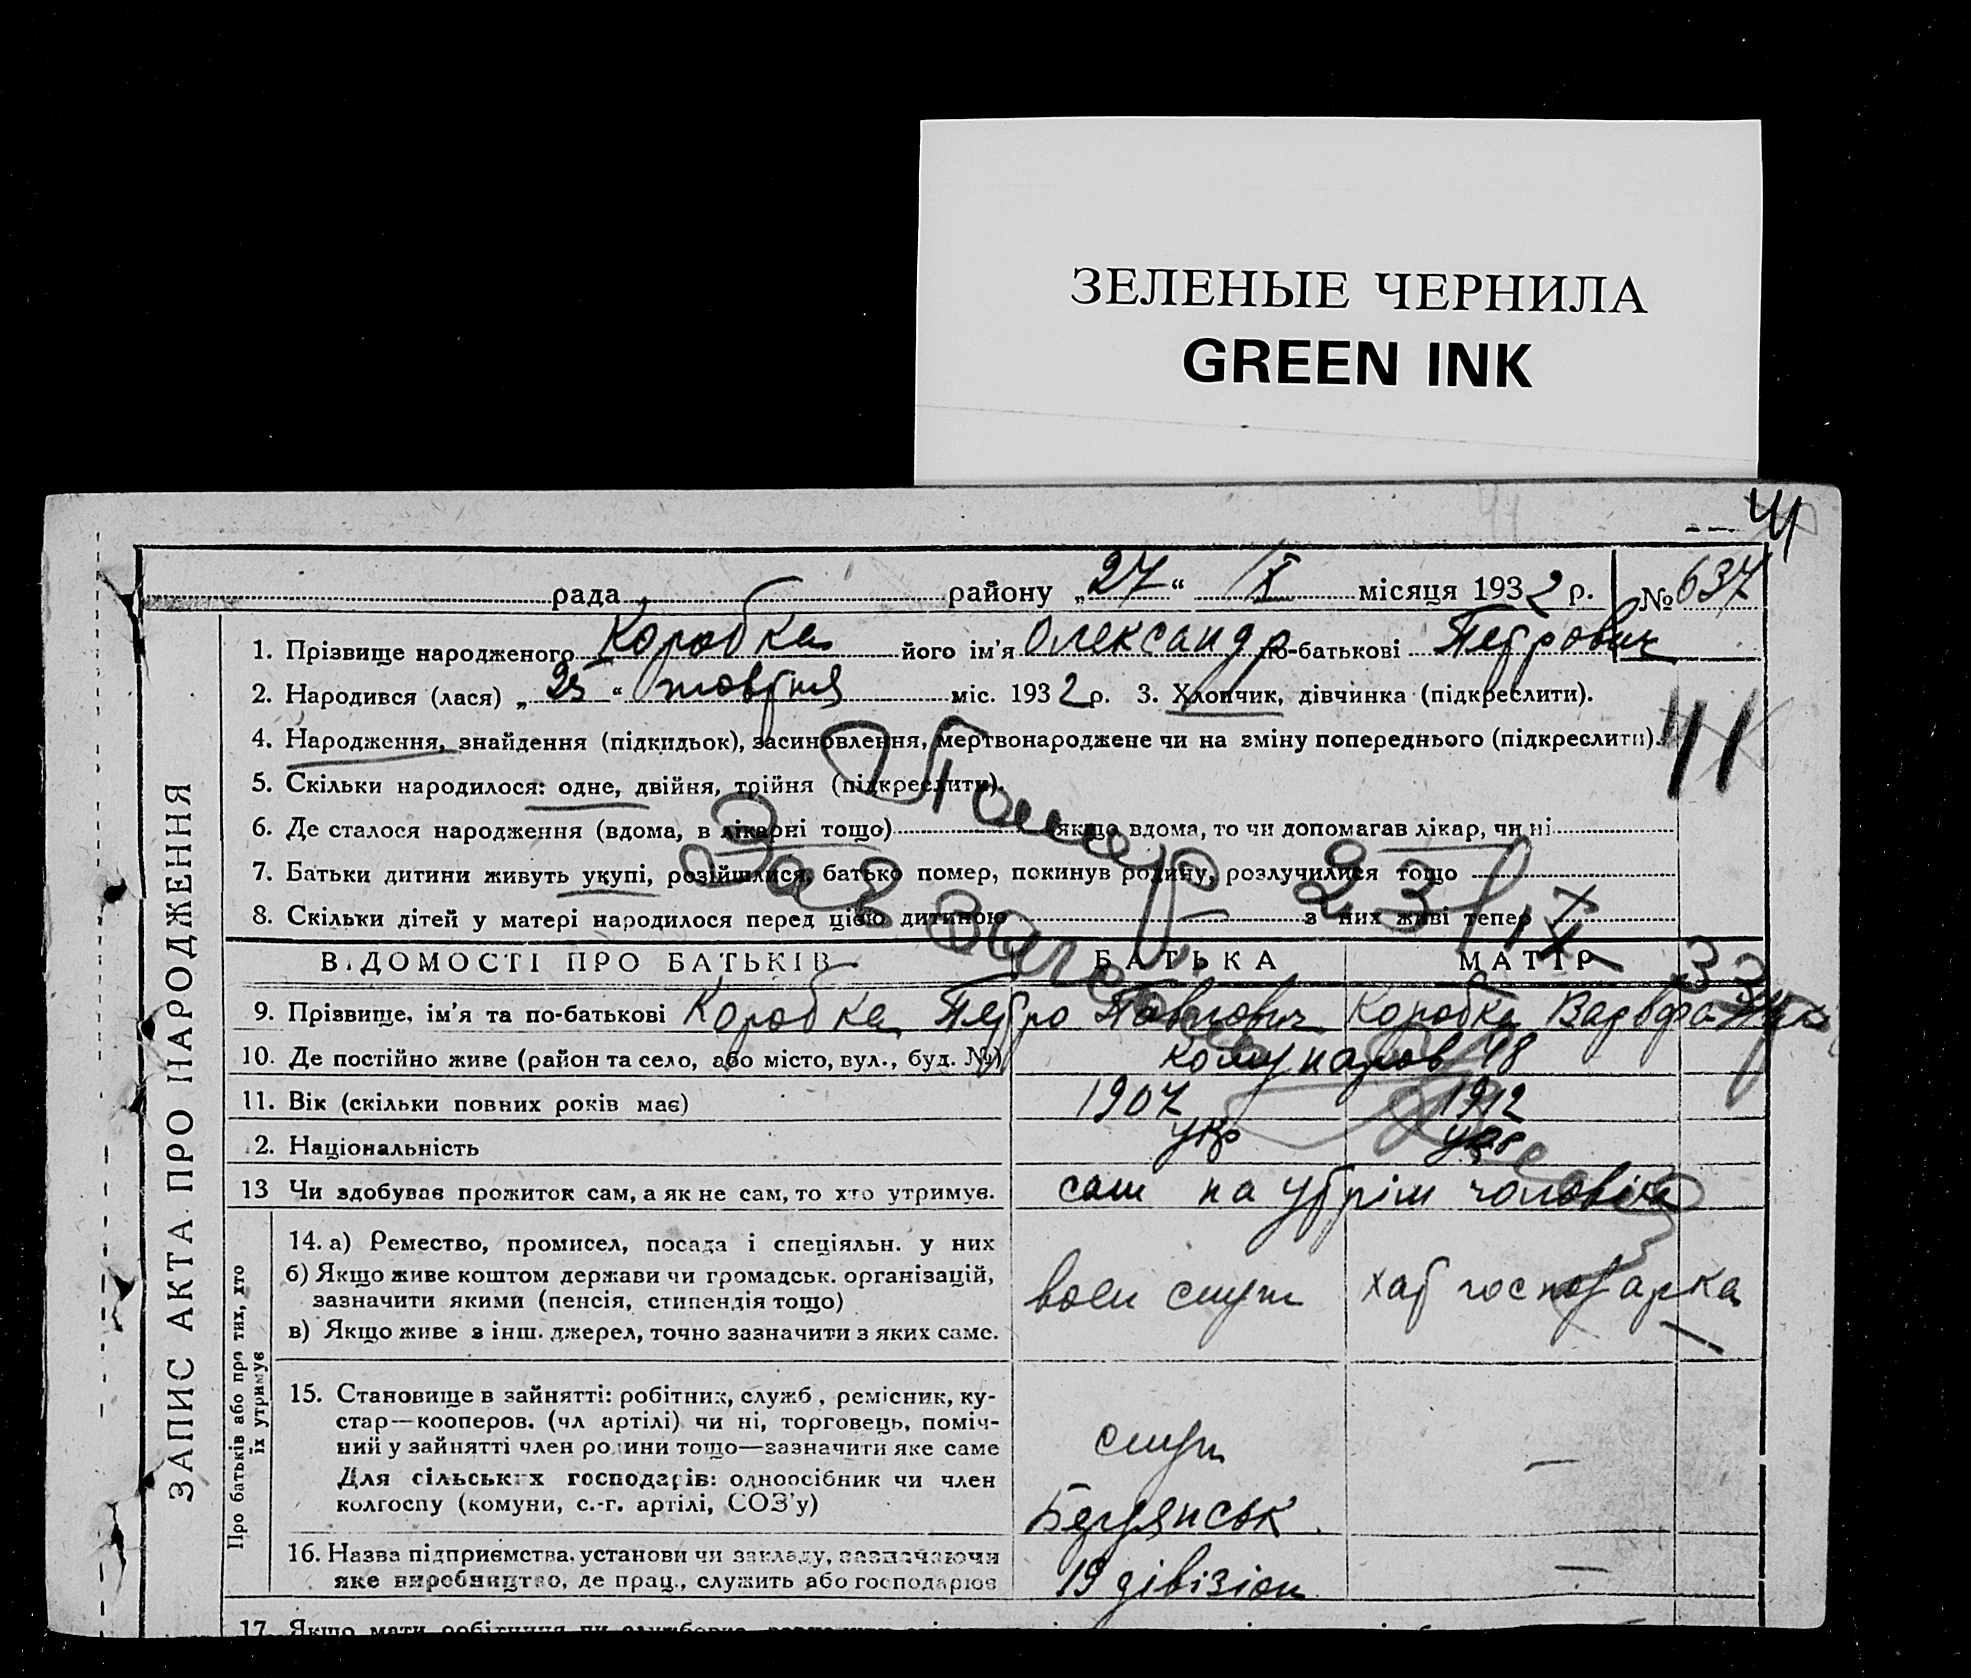 ЗЕЛЕНЫЕ ЧЕРНИЛА
GREEN INK
41
рада району „27“ X місяця 1932 р. № 637
1. Прізвище народженого Коробка його ім'я Олександр по-батькові Петрович
2. Народився (лася) „25“ жовтня міс. 1932 р. 3. Хлопчик, дівчинка (підкреслити).
4. Народження, знайдення (підкидьок), засиновлення, мертвонароджене чи на зміну попереднього (підкреслити).
41
5. Скільки народилося: одне, двійня, трійня (підкреслити).
6. Де сталося народження (вдома, в лікарні тощо) якщо вдома, то чи допомагав лікар, чи ні
7. Батьки дитини живуть укупі, розійшлися, батько помер, покинув родину, розлучилися тощо
8. Скільки дітей у матері народилося перед цією дитиною з них живі тепер
ЗАПИС АКТА ПРО НАРОДЖЕННЯ
ВІДОМОСТІ ПРО БАТЬКІВ БАТЬКА МАТІР
9. Прізвище, ім'я та по-батькові Коробка Петро Павлович Коробка Варвара
10. Де постійно живе (район та село, або місто, вул., буд. №) комунаров 48
11. Вік (скільки повних років має) 1907 1912
2. Національність укр укр
13 Чи здобуває прожиток сам, а як не сам, то хто утримує. сам на утрім чоловіка
Про батьків або про тих, хто їх утримує
14. а) Ремество, промисел, посада і спеціяльн. у них
б) Якщо живе коштом держави чи громадськ. організацій,
зазначити якими (пенсія, стипендія тощо) воен служ хат господарка
в) Якщо живе з інш. джерел, точно зазначити з яких саме.
15. Становище в зайнятті: робітник, служб, ремісник, ку-
стар—кооперов. (чл артілі) чи ні, торговець, поміч-
ний у зайнятті член родини тощо—зазначити яке саме служ —
Для сільських господарів: одноосібник чи член
колгоспу (комуни, с.-г. артілі, СОЗ'у)
Бердянськ
16. Назва підприємства, установи чи закладу, зазначаючи
яке виробництво, де прац., служить або господарює 19 дівізіон —
17. Якщо мати робітниця чи службовка